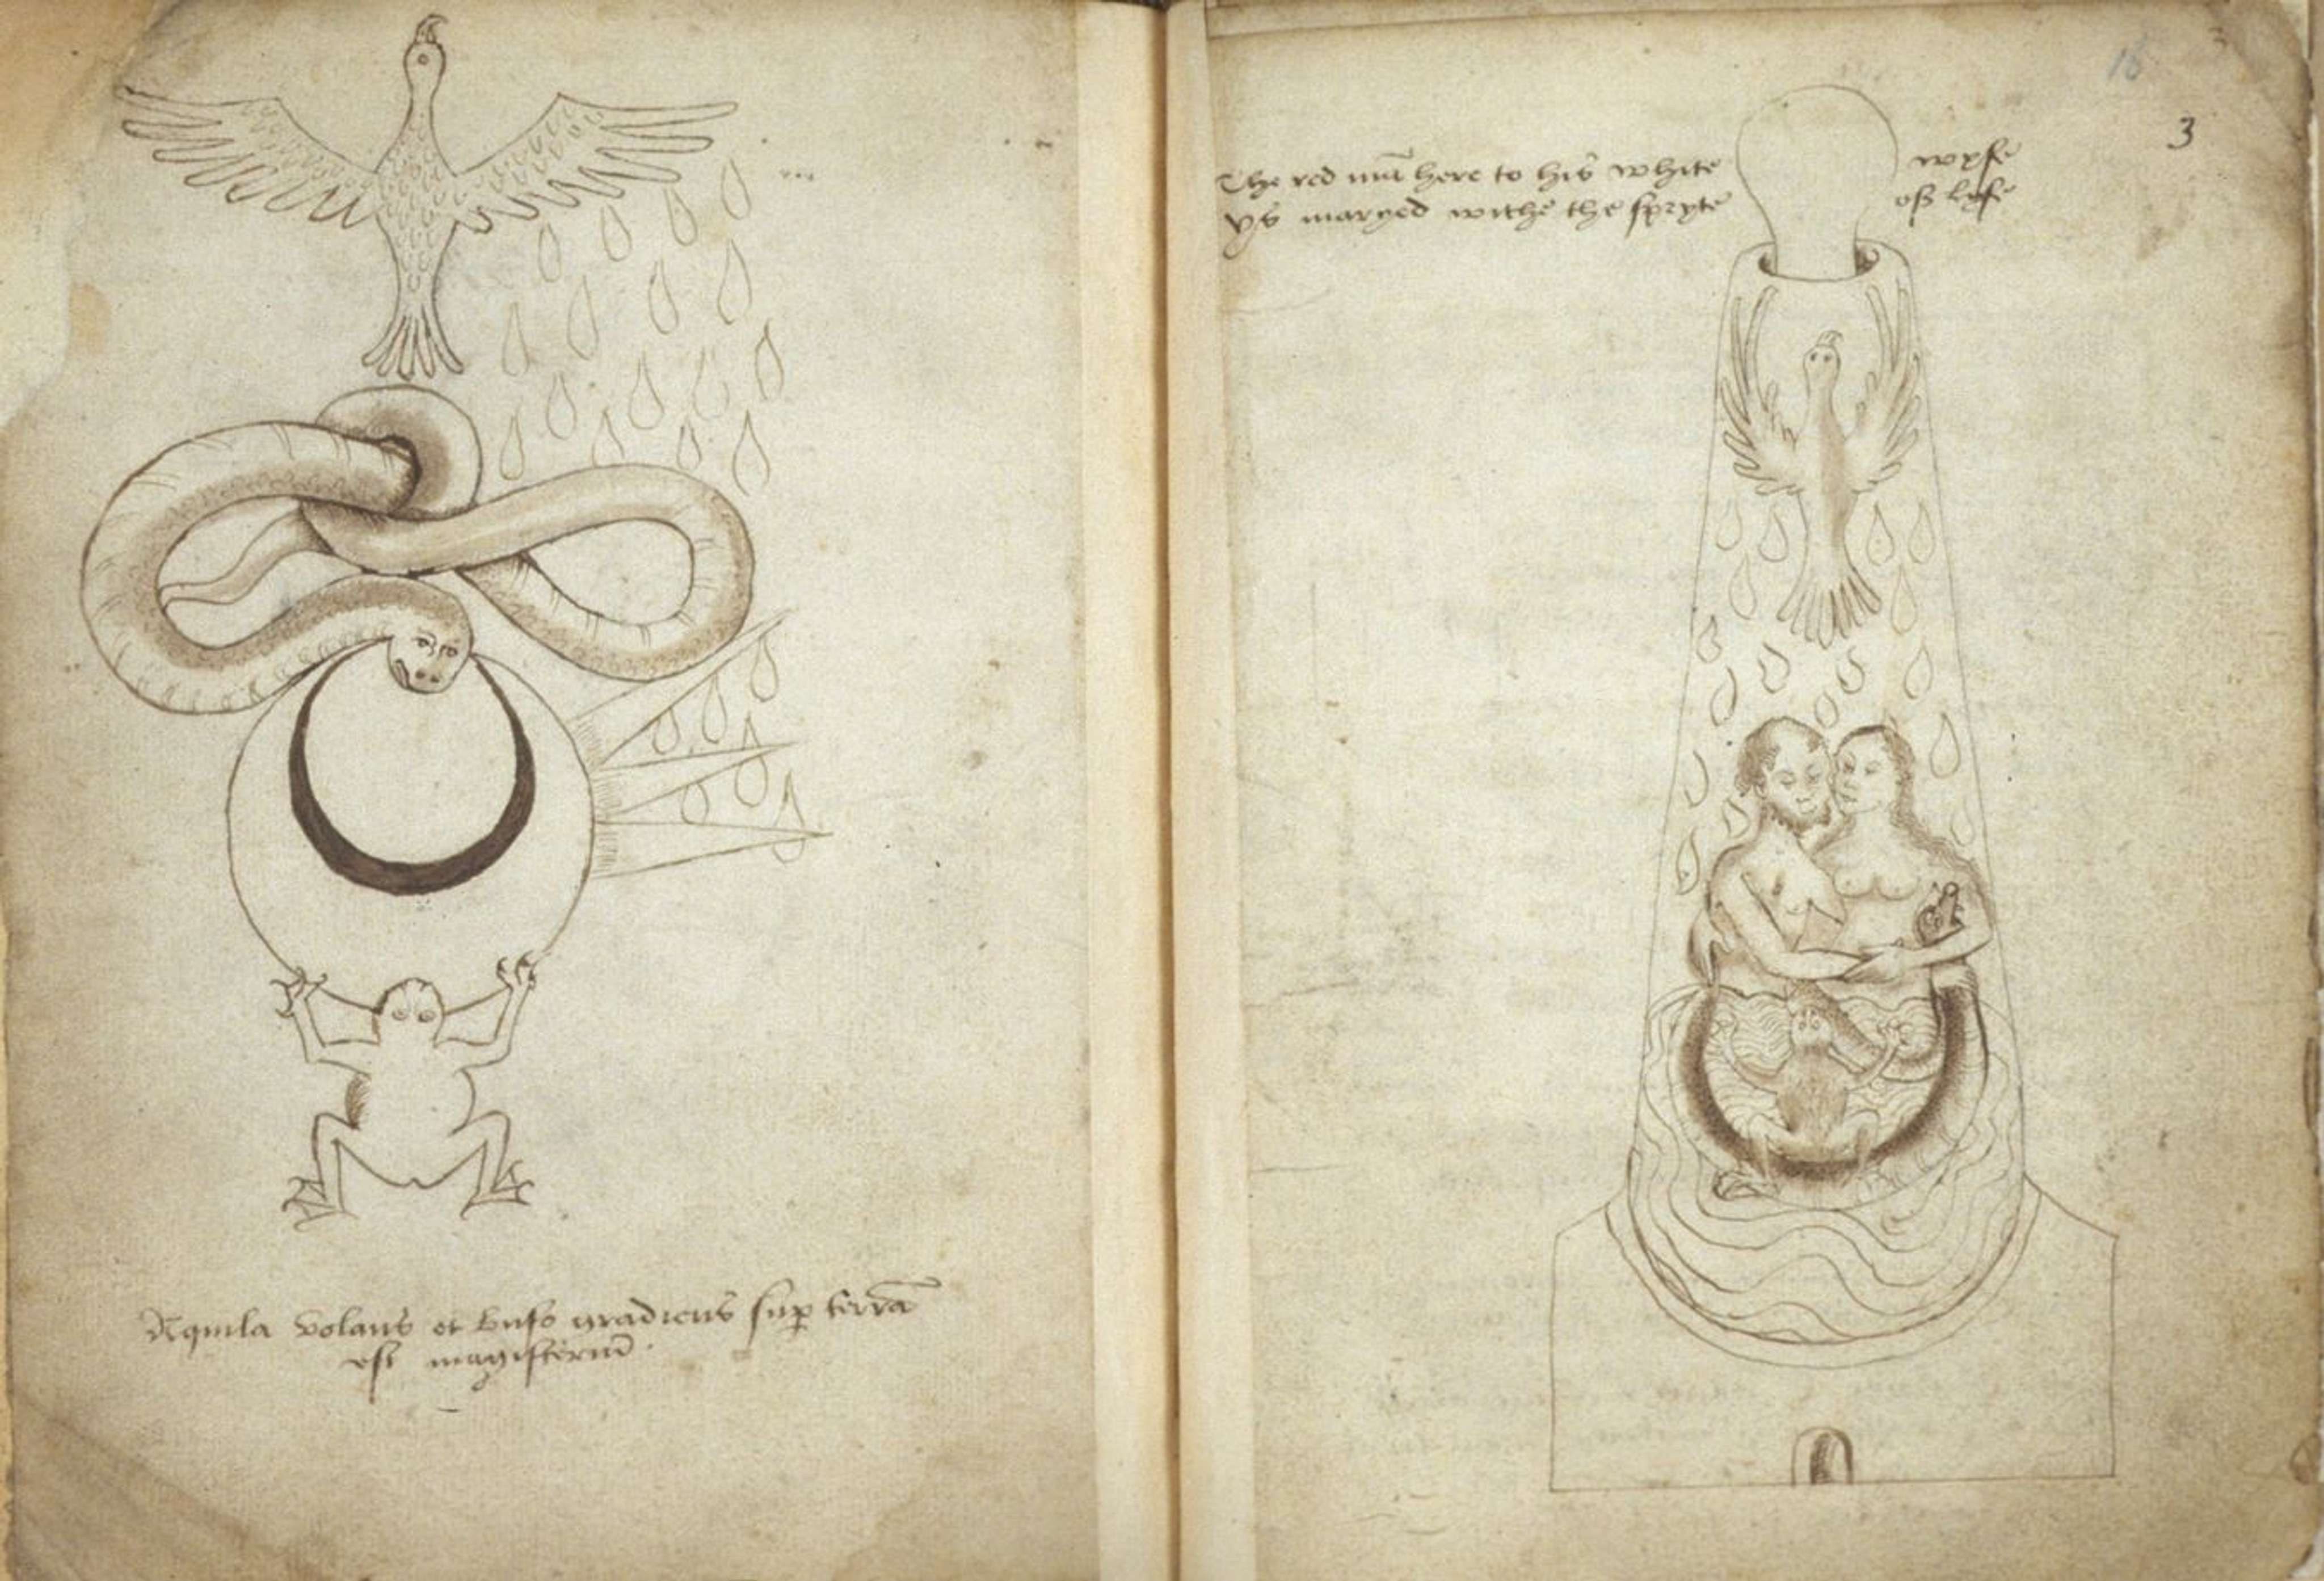 Aquila volans et bufo gradiens sup terrã
est magisteriũ.
18
3
3
The red mã here to his white wyfe
ys maryed withe the spryte off lyfe